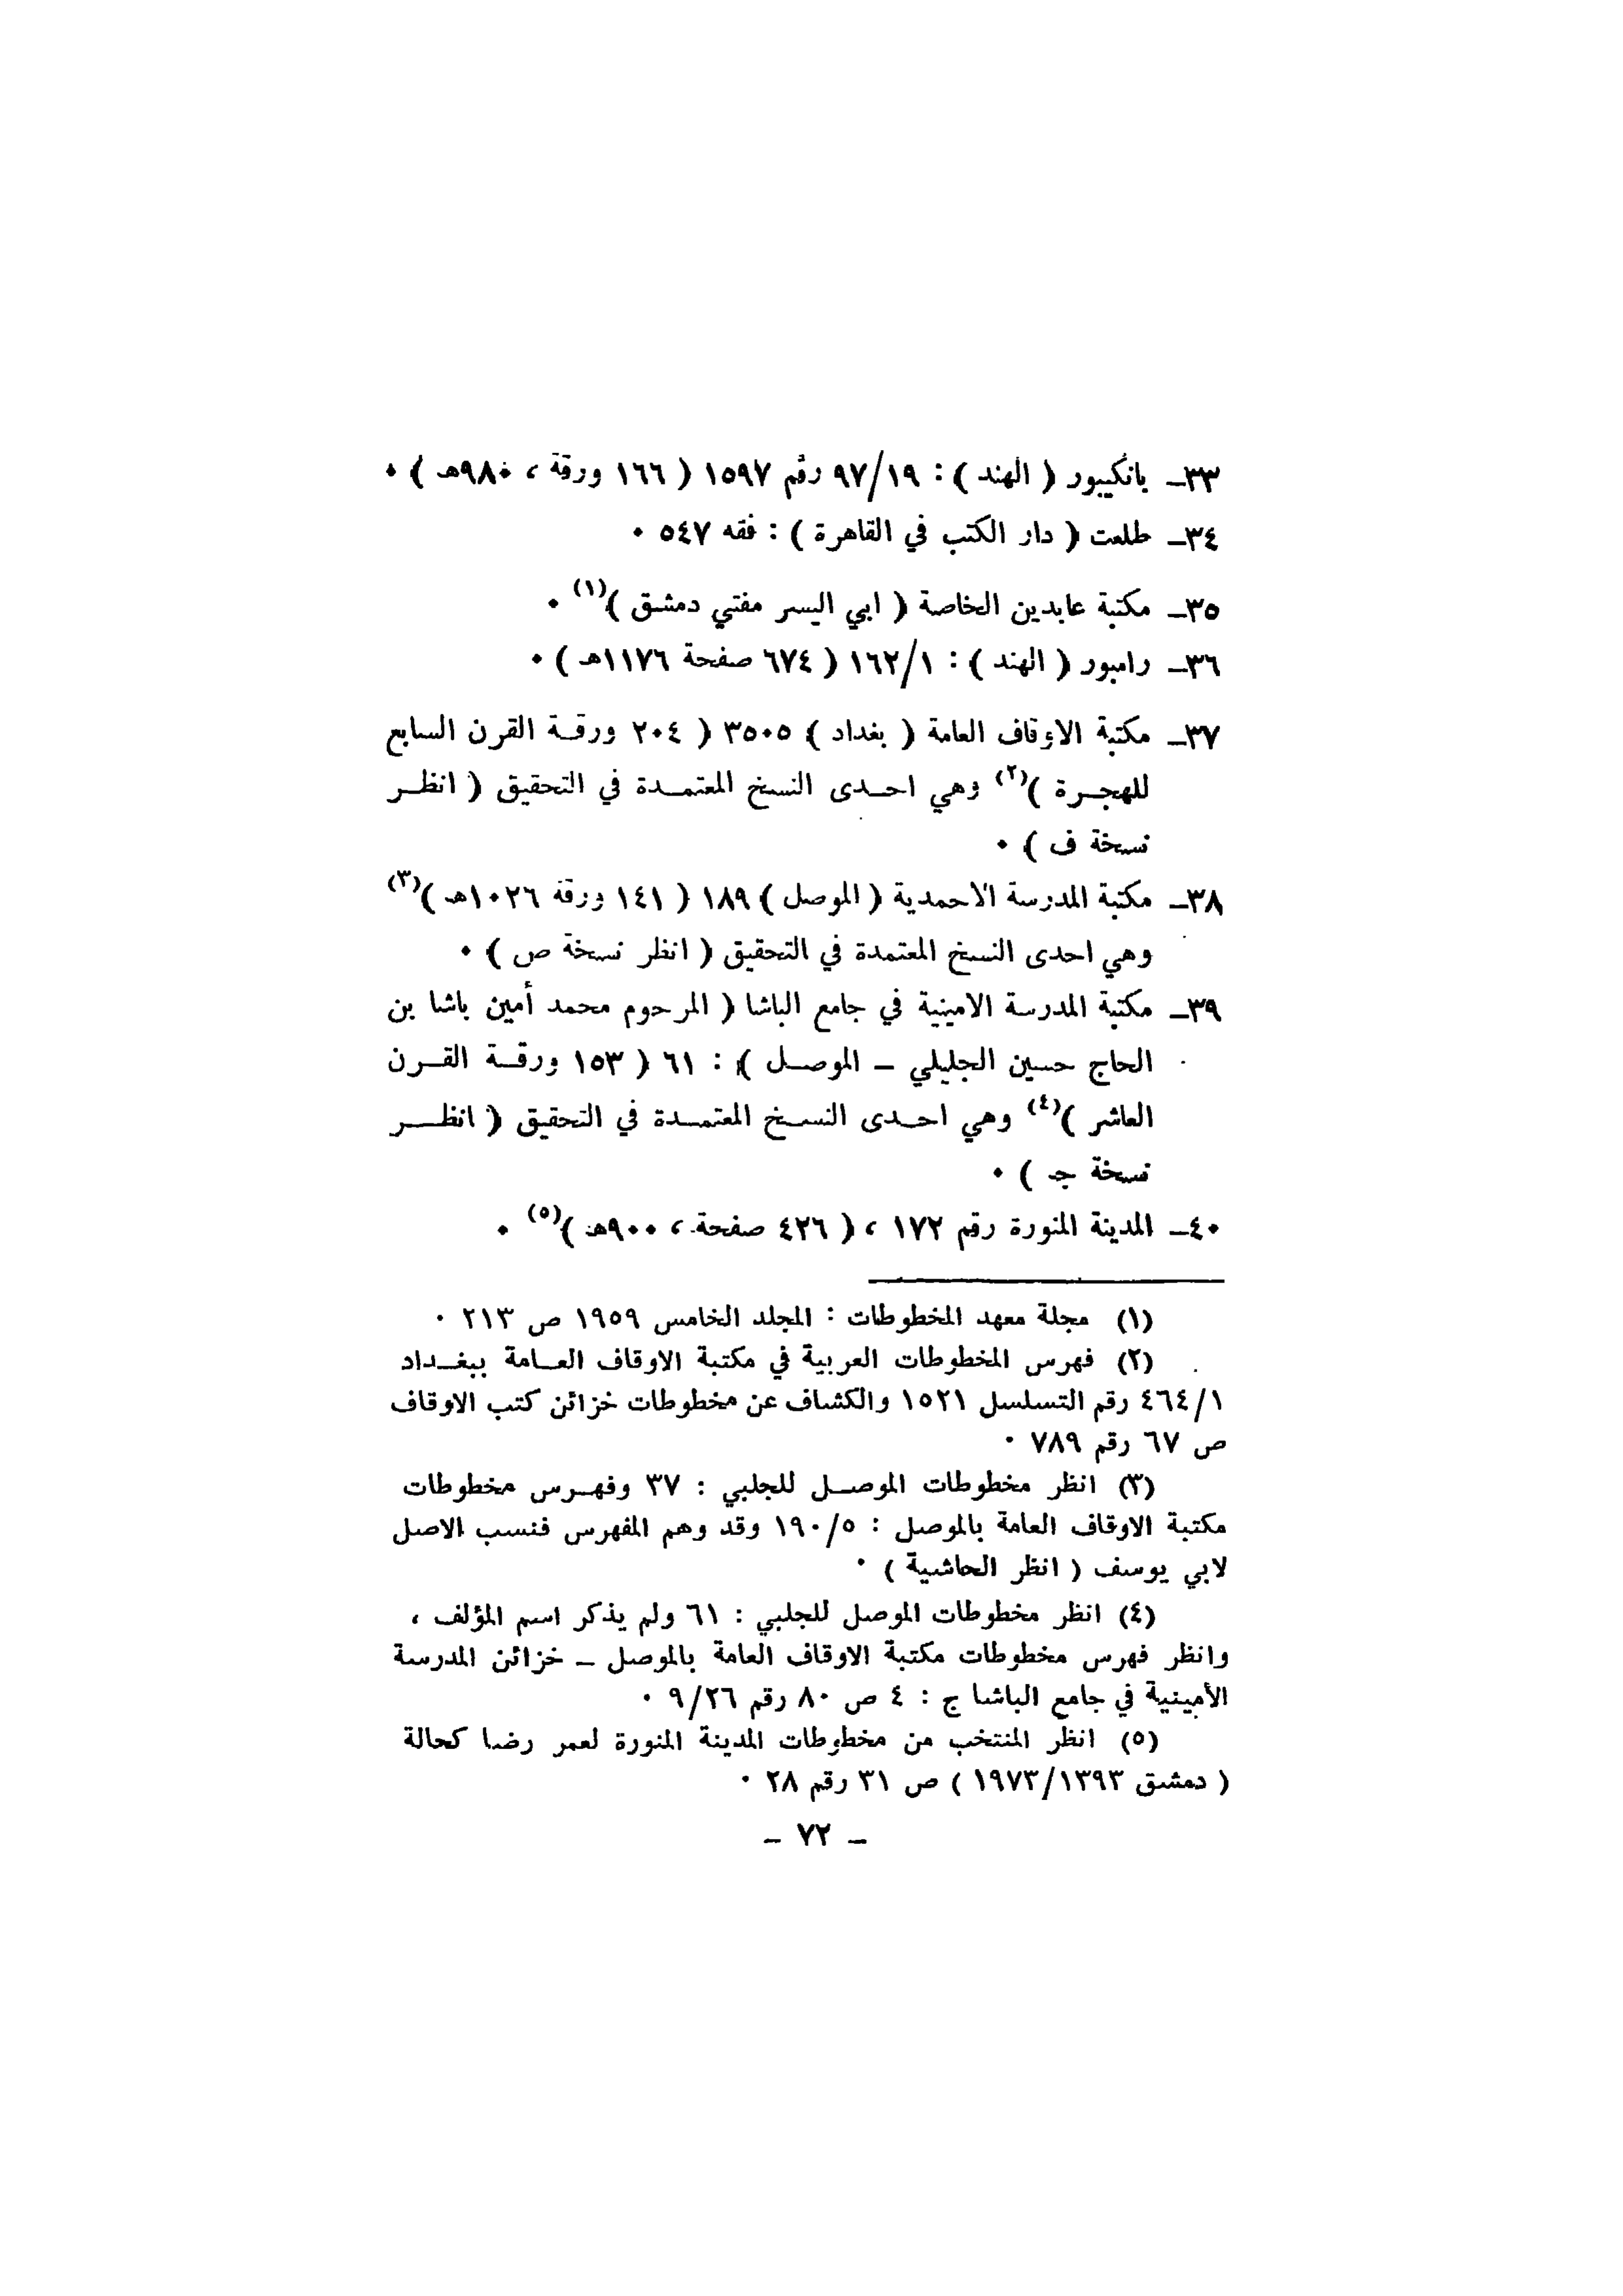 ٣٣ــ بانكيبور ( الهند ) : ٩٧/١٩ رقم ١٥٩٧ ( ١٦٦ ورقة ، ٩٨٠هـ ) ٠
٣٤ــ طلعت ( دار الكتب في القاهرة ) : فقه ٥٤٧ ٠
٣٥ــ مكتبة عابدين الخاصة ( ابي اليسر مفتي دمشق )(١) ٠
٣٦ــ رامبور ( الهند ) : ١٦٢/١ ( ٦٧٤ صفحة ١١٧٦هـ ) ٠
٣٧ــ مكتبة الاوقاف العامة ( بغداد ) ٣٥٠٥ ( ٢٠٤ ورقـة القرن السابع
للهجـرة )(٢) وهي احـدى النسخ المعتمـدة في التحقيق ( انظـر
نسخة ف ) ٠
٣٨ــ مكتبة المدرسة الاحمدية ( الموصل ) ١٨٩ ( ١٤١ ورقة ١٠٢٦هـ )(٣)
وهي احدى النسخ المعتمدة في التحقيق ( انظر نسخة ص ) ٠
٣٩ــ مكتبة المدرسة الامينية في جامع الباشا ( المرحوم محمد أمين باشا بن
الحاج حسين الجليلي – الموصـل ) : ٦١ ( ١٥٣ ورقـة القـرن
العاشر )(٤) وهي احـدى النسـخ المعتمـدة في التحقيق ( انظـر
نسخة جـ ) ٠
٤٠ــ المدينة المنورة رقم ١٧٢ ، ( ٤٢٦ صفحة ، ٩٠٠هـ )(٥) ٠
(١) مجلة معهد المخطوطات : المجلد الخامس ١٩٥٩ ص ٢١٣ ٠
(٢) فهرس المخطوطات العربية في مكتبة الاوقاف العـامة ببغـداد
٤٦٤/١ رقم التسلسل ١٥٢١ والكشاف عن مخطوطات خزائن كتب الاوقاف
ص ٦٧ رقم ٧٨٩ ٠
(٣) انظر مخطوطات الموصـل للجلبي : ٣٧ وفهـرس مخطوطات
مكتبة الاوقاف العامة بالموصل : ١٩٠/٥ وقد وهم المفهرس فنسب الاصل
لابي يوسف ( انظر الحاشية ) ٠
(٤) انظر مخطوطات الموصل للجلبي : ٦١ ولم يذكر اسم المؤلف ،
وانظر فهرس مخطوطات مكتبة الاوقاف العامة بالموصل – خزائن المدرسة
الأمينية في جامع الباشا ج : ٤ ص ٨٠ رقم ٩/٢٦ ٠
(٥) انظر المنتخب من مخطوطات المدينة المنورة لعمر رضا كحالة
( دمشق ١٩٧٣/١٣٩٣ ) ص ٣١ رقم ٢٨ ٠
– ٧٢ –